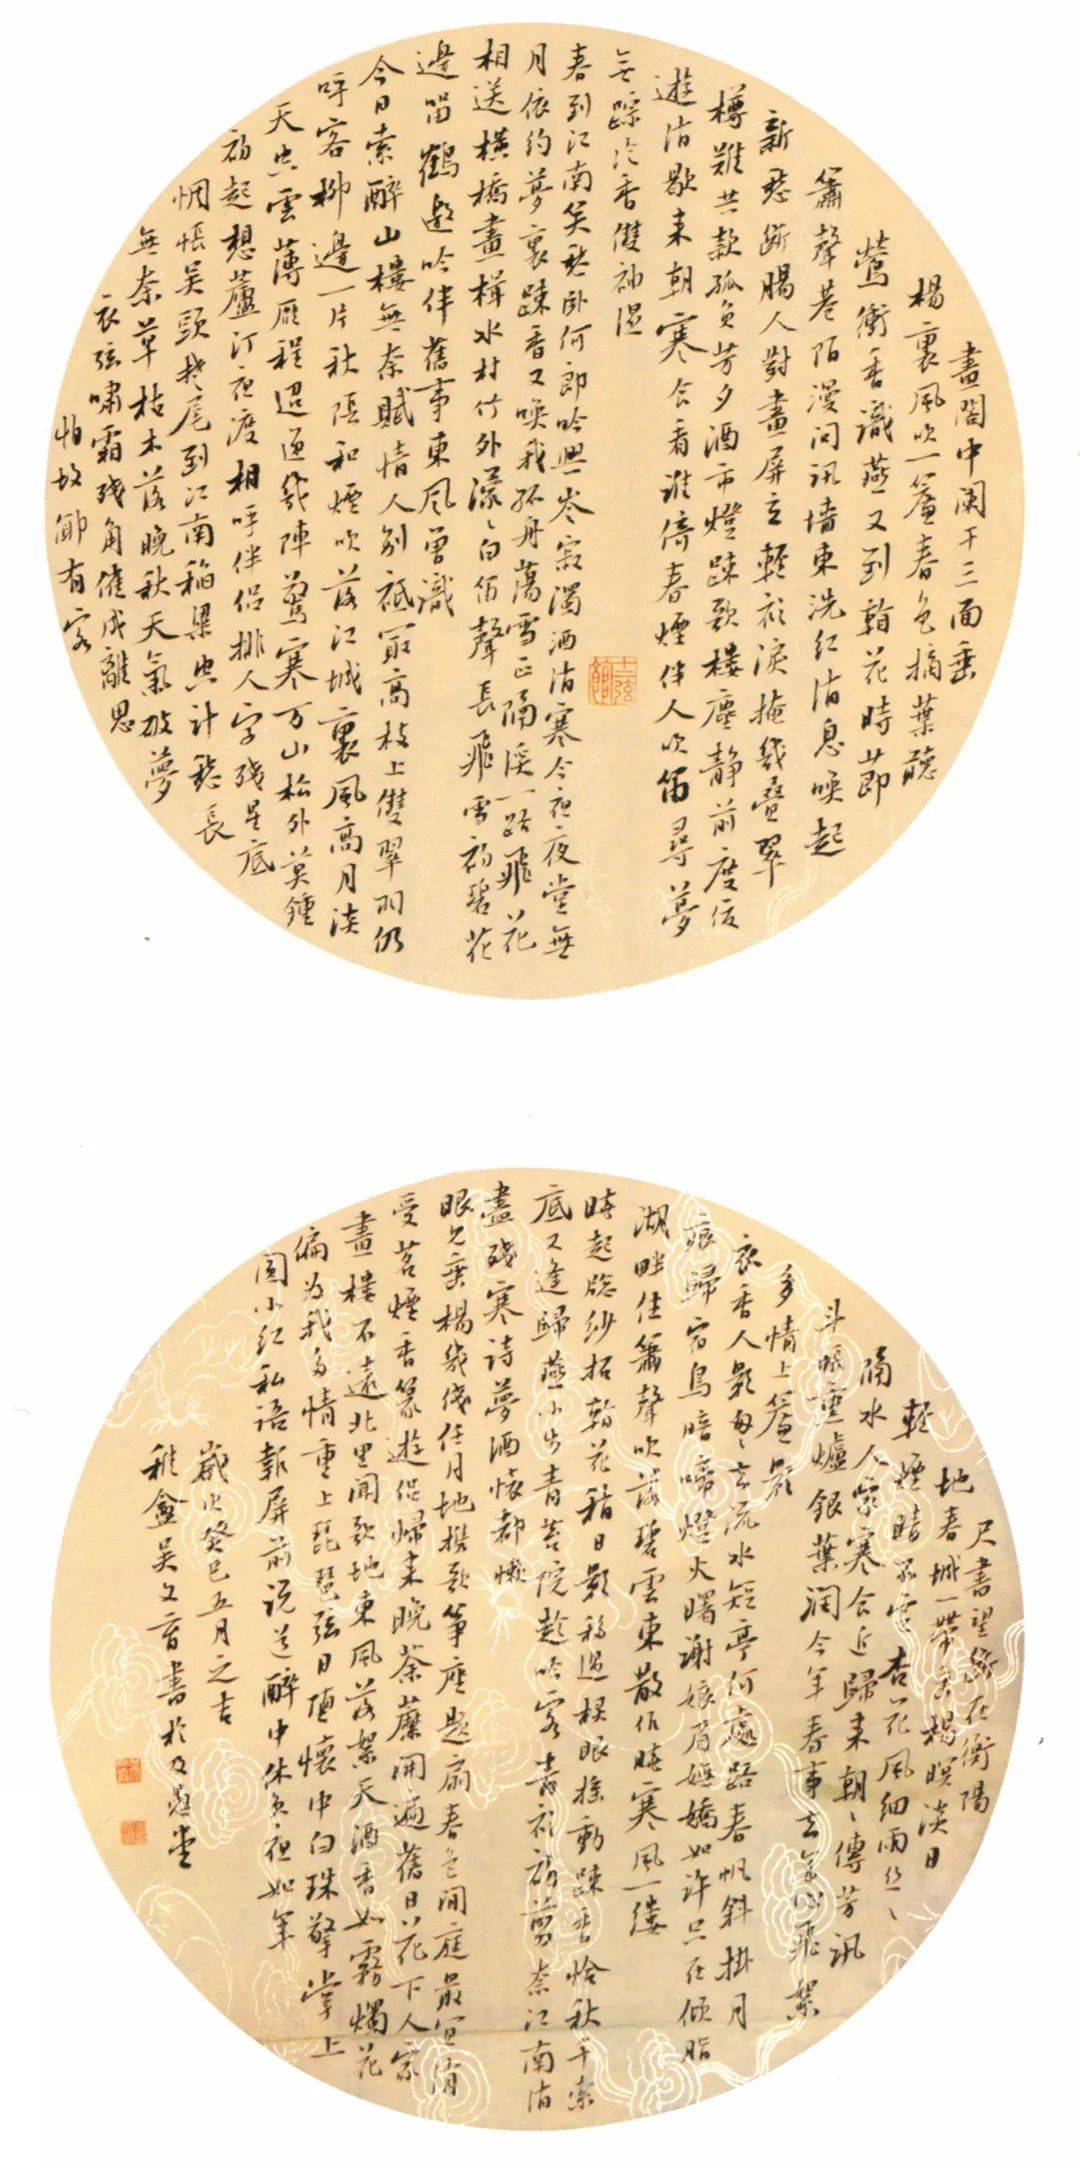 畫閣中闌干三面垂
楊裏風吹一簾春色摘葉聽
鶯銜香識燕又到翰花時節
簫聲巷陌漫問訊墻東洗紅消息喚起
新愁斷腸人對畫屏立輕衫淚掩幾疊翠
樽難共款孤負芳夕酒市燈疎歌樓塵靜前度仮
遊消歇来朝寒食看誰倚春煙伴人吹笛尋夢
無蹤冷香雙袖濕
春到江南矣愁卧何郎吟興岑寂濁酒消寒今夜夜堂無
月依約夢裏疎香又喚我孤舟蕩雪正隔溪一路飛花
相送橫橋畫楫水村竹外濛濛白佰聲長飛雪初碧花
邊留鶴邀吟伴舊事東風曾識
今日索醉山樓無奈賦情人別祗最高枝上雙翠羽仍
呼客柳邊一片秋張和煙吹落江城裏風高月淡
天空雲薄雁程迢逓幾陣驚寒万山松外莫鍾
初起想蘆汀夜渡相呼伴侶排人字殘星底
惆悵吴頭楚尾到江南稲粱空計愁長
無奈草枯木落晚秋天氣破夢
衣弦嘯霜殘角催成離思
怕故鄉有客
尺書望斷在衡陽
地春城一帶垂楊暝淡日
輕煙晴不定杏花風細雨絲絲
隔水人家寒食近歸来朝朝傳芳訊
斗帳重爐銀葉潤今年春事去無心飛絮
多情上簾影
衣香人影匆匆去流水短亭何處路春帆斜掛月
痕歸宿鳥暗啼燈火曙謝娘眉嫵嬌如許只在傾脂
湖畔住簫聲吹落碧雲東散作曉寒風一縷
曉起臨紗拓翰花稍日影移過棋眼搖動疎香恰秋千索
底又逢歸燕小步青苔院趁吟客青衫初剪奈江南消
盡殘寒詩夢酒懷都懶
眼兒垂楊幾線任月地携歌箏座題扇春色閒庭最宜消
受茗煙香篆遊侶歸来晚荼蘼開遍舊日花下人家
畫樓不遠北里聞歌地東風落絮天酒香如霧燭花
偏为我多情重上琵琶弦月墮懷中白珠擎掌上
圓小红私語報屏前说道醉中休負夜如年
歲次癸巳五月之吉
稚盦吴文音書於及愚堂